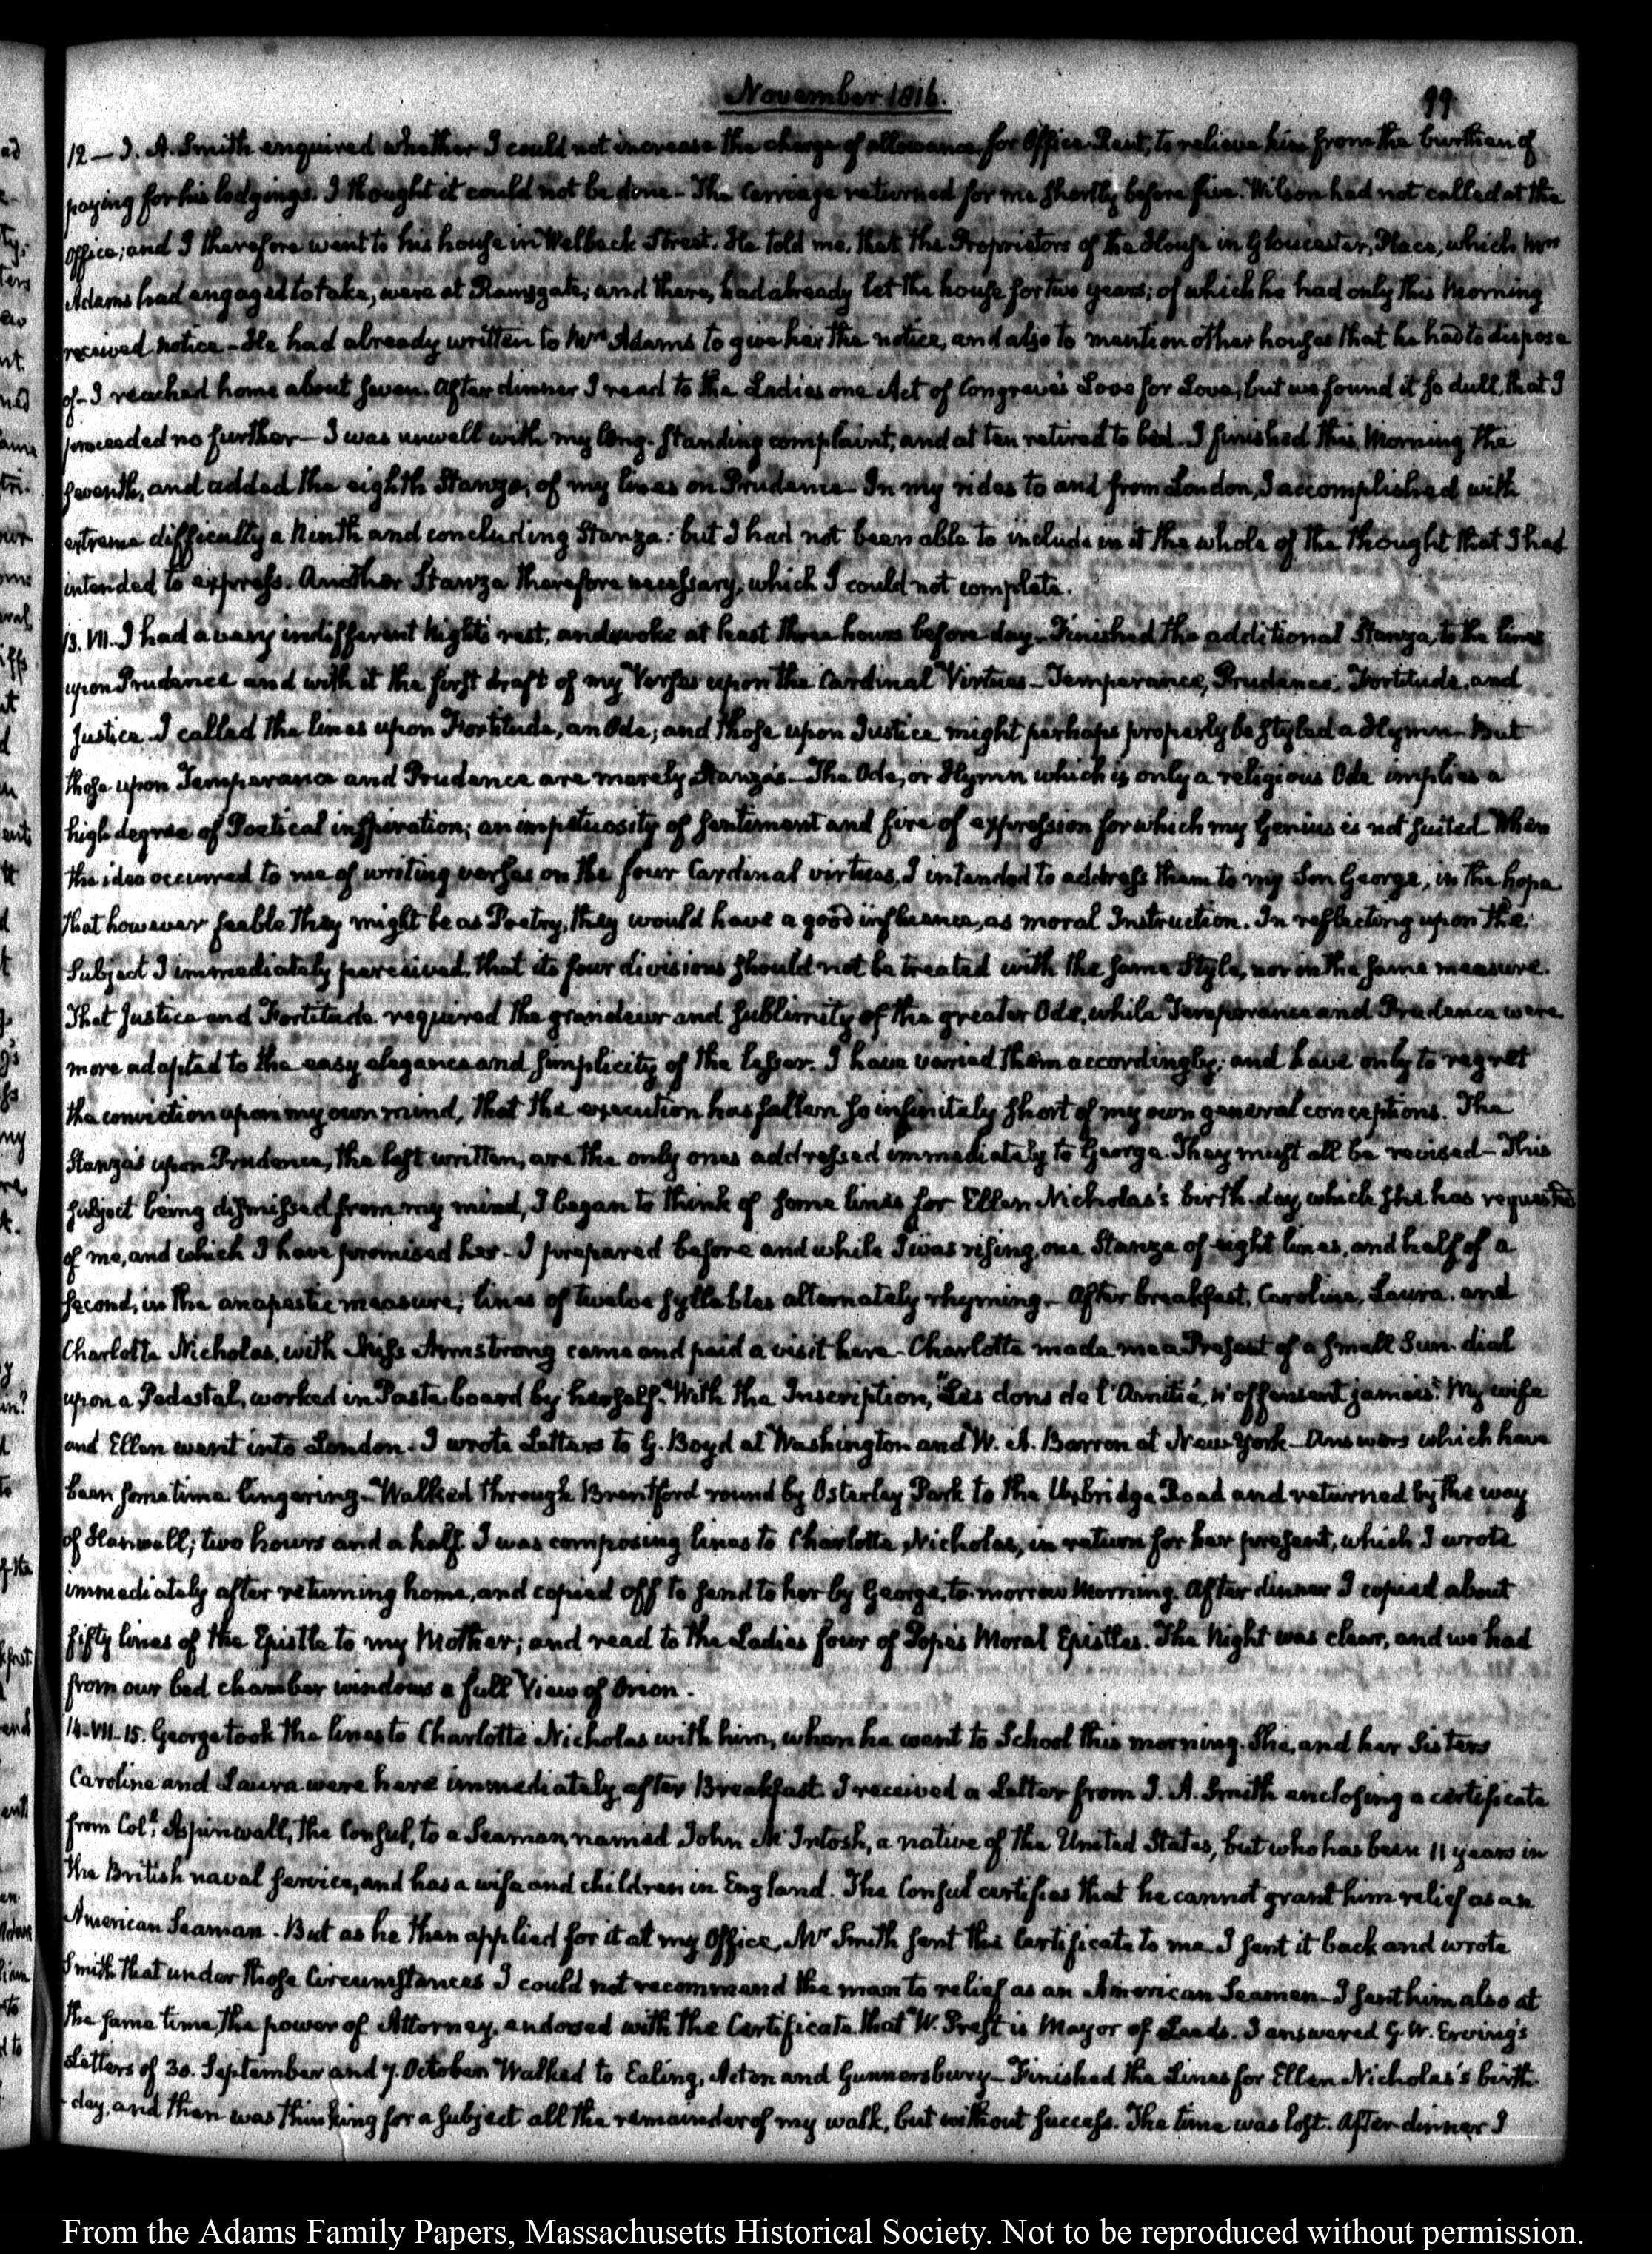 November 1816.
99.
12 — J. A. Smith enquired whether I could not increase the charge of allowance for Office Rent, to relieve him from the burthen of
paying for his lodgings. I thought it could not be done — The Carriage returned for me shortly before five. Wilson had not called at the
Office; and I therefore went to his house in Welbeck Street. He told me, that the Proprietors of the House in Gloucester Place, which Mrs
Adams had engaged to take, were at Ramsgate; and there, had already let the house for two years; of which he had only this Morning
received notice — He had already written to Mrs Adams to give her the notice, and also to mention other houses that he had to dispose
of — I reached home about seven. After dinner I read to the Ladies one Act of Congreve's Love for Love, but we found it so dull, that I
proceeded no further — I was unwell with my long-standing complaint, and at ten retired to bed. I finished this Morning the
seventh, and added the eighth Stanza, of my lines on Prudence — In my rides to and from London, I accomplished with
extreme difficulty a Ninth and concluding Stanza: but I had not been able to include in it the whole of the thought that I had
intended to express. Another Stanza therefore necessary, which I could not complete.
13. VII. I had a very indifferent Night's rest, and awoke at least three hours before day — Finished the additional Stanza, to the lines
upon Prudence and with it the first draft of my Verses upon the Cardinal Virtues — Temperance, Prudence, Fortitude, and
Justice. I called the lines upon Fortitude, an Ode; and those upon Justice might perhaps properly be styled a Hymn — But
those upon Temperance and Prudence are merely Stanza's — The Ode, or Hymn which is only a religious Ode implies a
high degree of Poetical inspiration; an impetuosity of sentiment and fire of expression for which my Genius is not suited. When
the idea occurred to me of writing verses on the four Cardinal virtues, I intended to address them to my Son George, in the hope
that however feeble they might be as Poetry, they would have a good influence, as moral Instruction. In reflecting upon the
Subject I immediately perceived, that its four divisions should not be treated with the same Style, nor in the same measure.
That Justice and Fortitude required the grandeur and sublimity of the greater Ode, while Temperance and Prudence were
more adapted to the easy elegance and simplicity of the lesser. I have varied them accordingly; and have only to regret
the conviction upon my own mind, that the execution has fallen so infinitely short of my own general conceptions. The
Stanza's upon Prudence, the last written, are the only ones addressed immediately to George. They must all be revised — This
subject being dismissed from my mind, I began to think of some lines for Ellen Nicholas's birth-day, which she has requested
of me, and which I have promised her — I prepared before and while I was rising, one Stanza of eight lines, and half of a
second, in the anapestic measure; lines of twelve syllables alternately rhyming — After breakfast, Caroline, Laura, and
Charlotte Nicholas, with Miss Armstrong came and paid a visit here — Charlotte made me a Present of a small Sun-dial
upon a Pedestal, worked in Paste board by herself. With the Inscription, "Les dons de l'Amitié, n'offensent jamais." My wife
and Ellen went into London — I wrote Letters to G. Boyd at Washington and W. A. Barron at New-York — Answers which have
been some time lingering — Walked through Brentford round by Osterley Park to the Uxbridge Road and returned by the way
of Hanwell; two hours and a half. I was composing lines to Charlotte Nicholas, in return for her present, which I wrote
immediately after returning home, and copied off to send to her by George, to-morrow Morning. After dinner I copied about
fifty lines of the Epistle to my Mother; and read to the Ladies four of Pope's Moral Epistles. The Night was clear, and we had
from our bed chamber windows a full View of Orion.
14. VII. 15. George took the lines to Charlotte Nicholas with him, when he went to School this morning. She, and her Sisters
Caroline and Laura were here immediately after Breakfast. I received a Letter from J. A. Smith enclosing a certificate
from Coll. Aspinwall, the Consul, to a Seaman, named John McIntosh, a native of the United States, but who has been 11 years in
the British naval service, and has a wife and children in England. The Consul certifies that he cannot grant him relief as an
American Seaman. But as he then applied for it at my Office, Mr Smith sent this Certificate to me. I sent it back and wrote
Smith that under those Circumstances I could not recommend the man to relief as an American Seaman — I sent him also at
the same time, the power of Attorney, endorsed with the Certificate that W. Prest is Mayor of Leeds. I answered G. W. Erving's
Letters of 30. September and 7. October. Walked to Ealing, Acton and Gunnersbury — Finished the Lines for Ellen Nicholas's birth-
-day, and then was thinking for a subject all the remainder of my walk, but without success. The time was lost. After dinner I
From the Adams Family Papers, Massachusetts Historical Society. Not to be reproduced without permission.